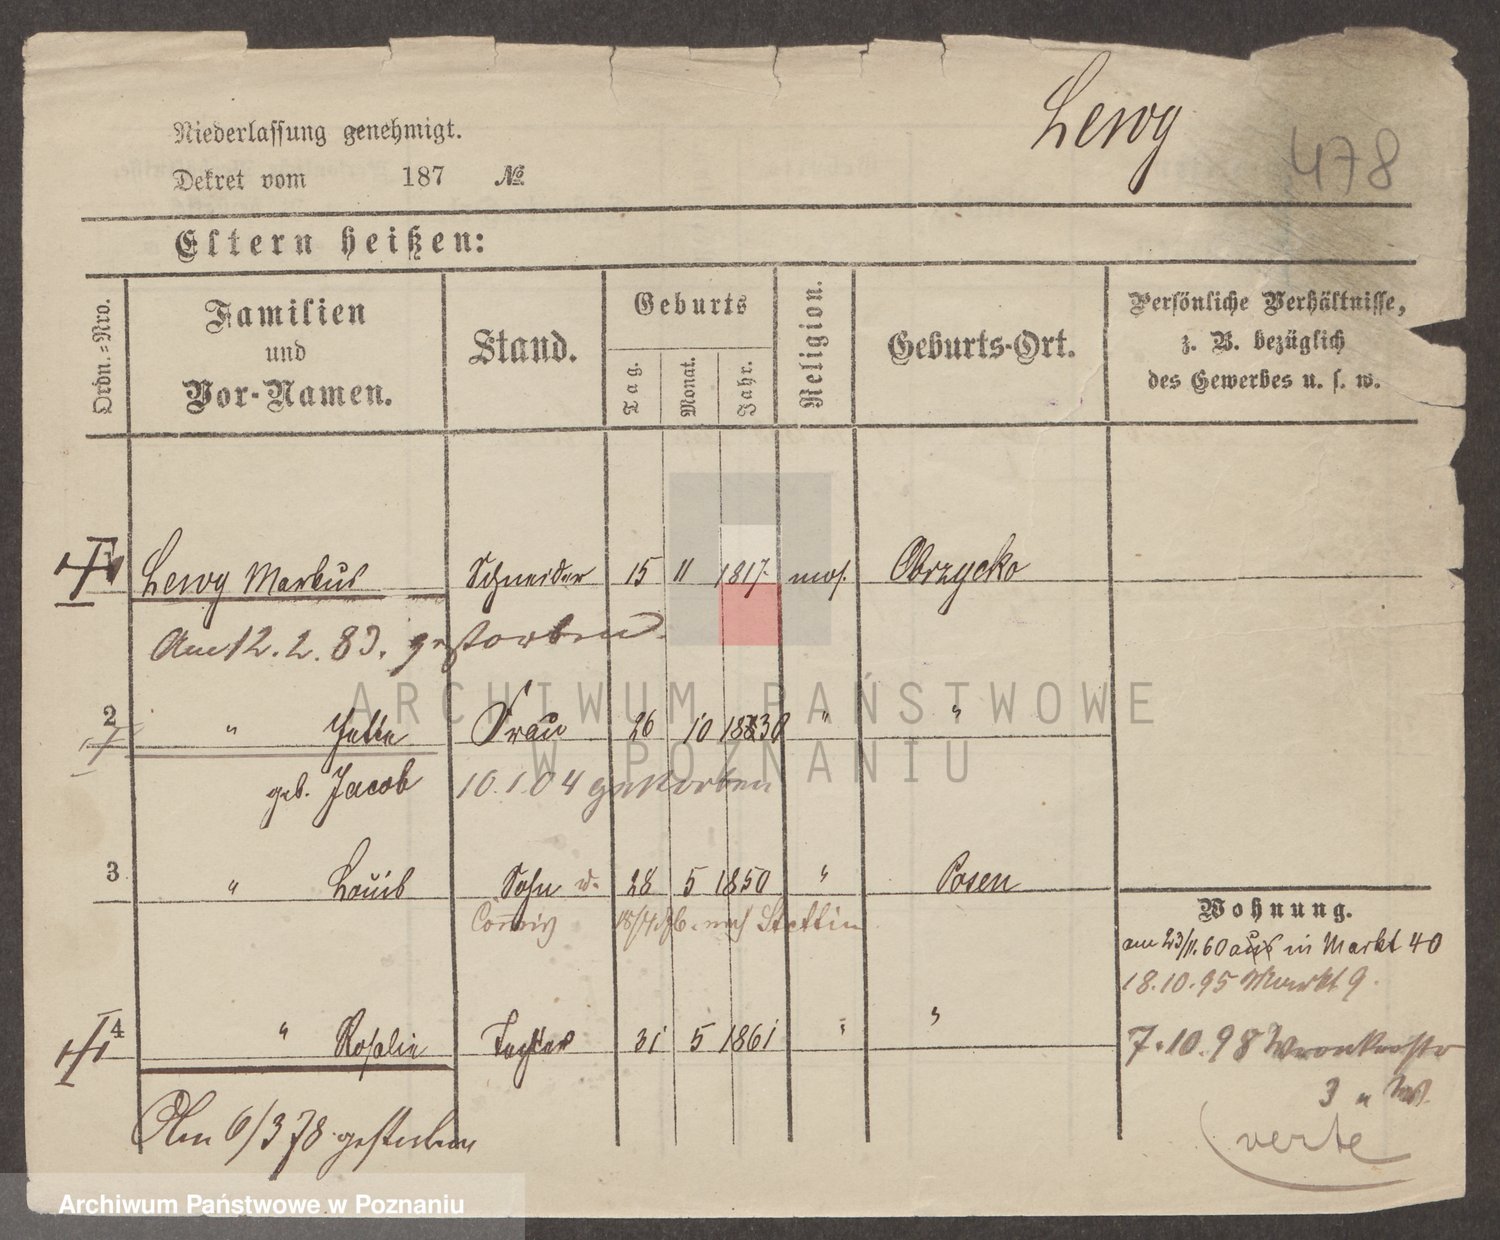 Lewy
478
Niederlassung genehmigt.
Dekret vom 187 №
Eltern heißen:
Ordn.=Nro.
Familien
und
Vor-Namen.
Stand.
Geburts
Tag.
Monat.
Jahr.
Religion.
Geburts-Ort.
Persönliche Verhältnisse,
z. B. bezüglich
des Gewerbes u. s. w.
Lewy Markus Schneider 15 11 1817. mos. Obrzycko
Am 12. 2. 83. gestorben.
2 " Jette Frau 26 10 1830 " "
geb. Jacob 10.1.04 gestorben
3 " Louis Sohn 28 5 1850 " Posen
nach Stettin
Wohnung.
am 23/11.60 aus in Markt 40
18.10.95 Markt 9.
4 " Rosalie Tochter 31 5 1861 " "
7.10.98 Wronkerstr
3
Am 6/3 78 gestorben
verte
ARCHIWUM PAŃSTWOWE
W POZNANIU
Archiwum Państwowe w Poznaniu